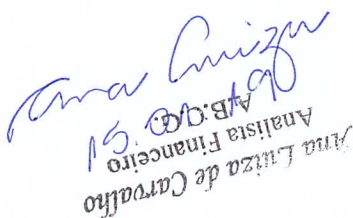 Ana Luiza
Ana Luiza de Carvalho
Analista Financeiro
A.B.C.G.